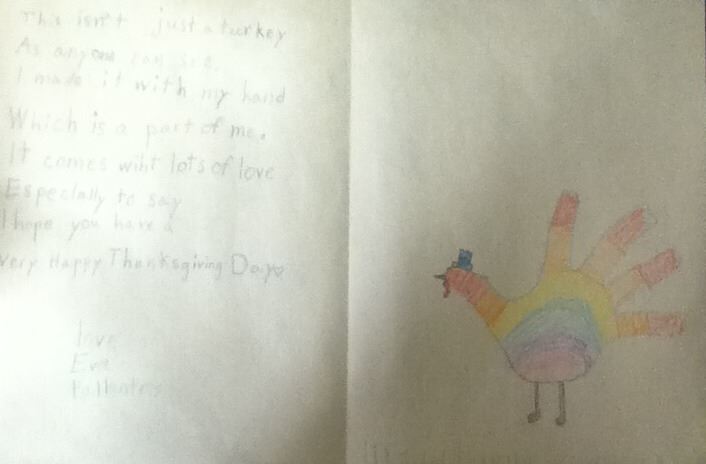 This isn't just a turkey
As anyone can see.
I made it with my hand
Which is a part of me.
It comes wiht lots of love
Especially to say
I hope you have a
Very Happy Thanksgiving Day
love